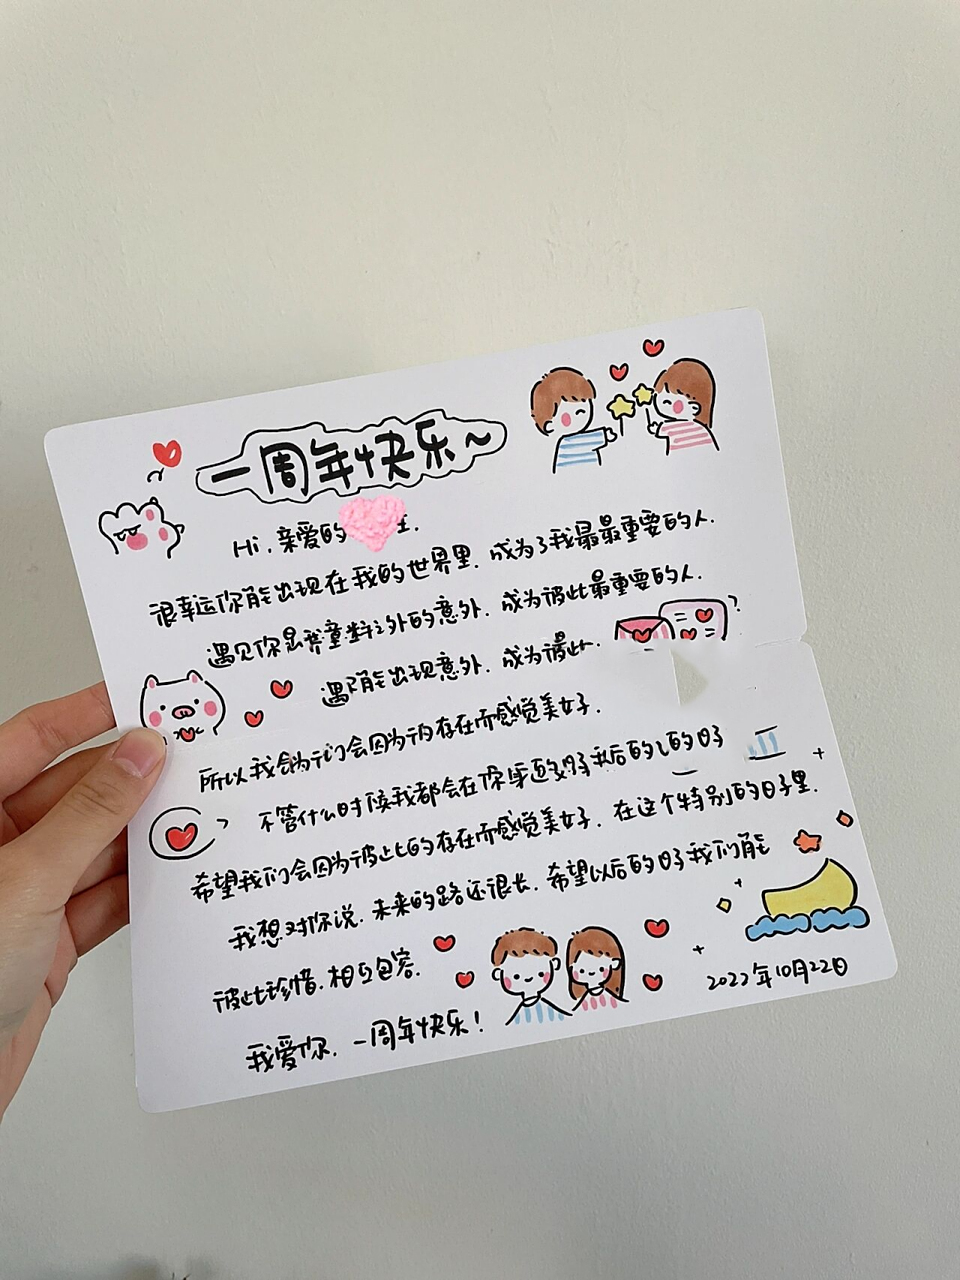 一周年快乐~
Hi.亲爱的
很幸运你能出现在我的世界里.成为了我最最重要的人.
遇见你是我意料之外的意外.成为彼此最重要的人.
能出现意外.成为
所以我会因为存在而感觉美好.
不管什么时候我都会在你身边
希望我们会因为彼此的存在而感觉美好.在这个特别的日子里.
我想对你说.未来的路还很长.希望以后的日子我们能
彼此珍惜.相互包容.
我爱你.一周年快乐!
2022年10月22日